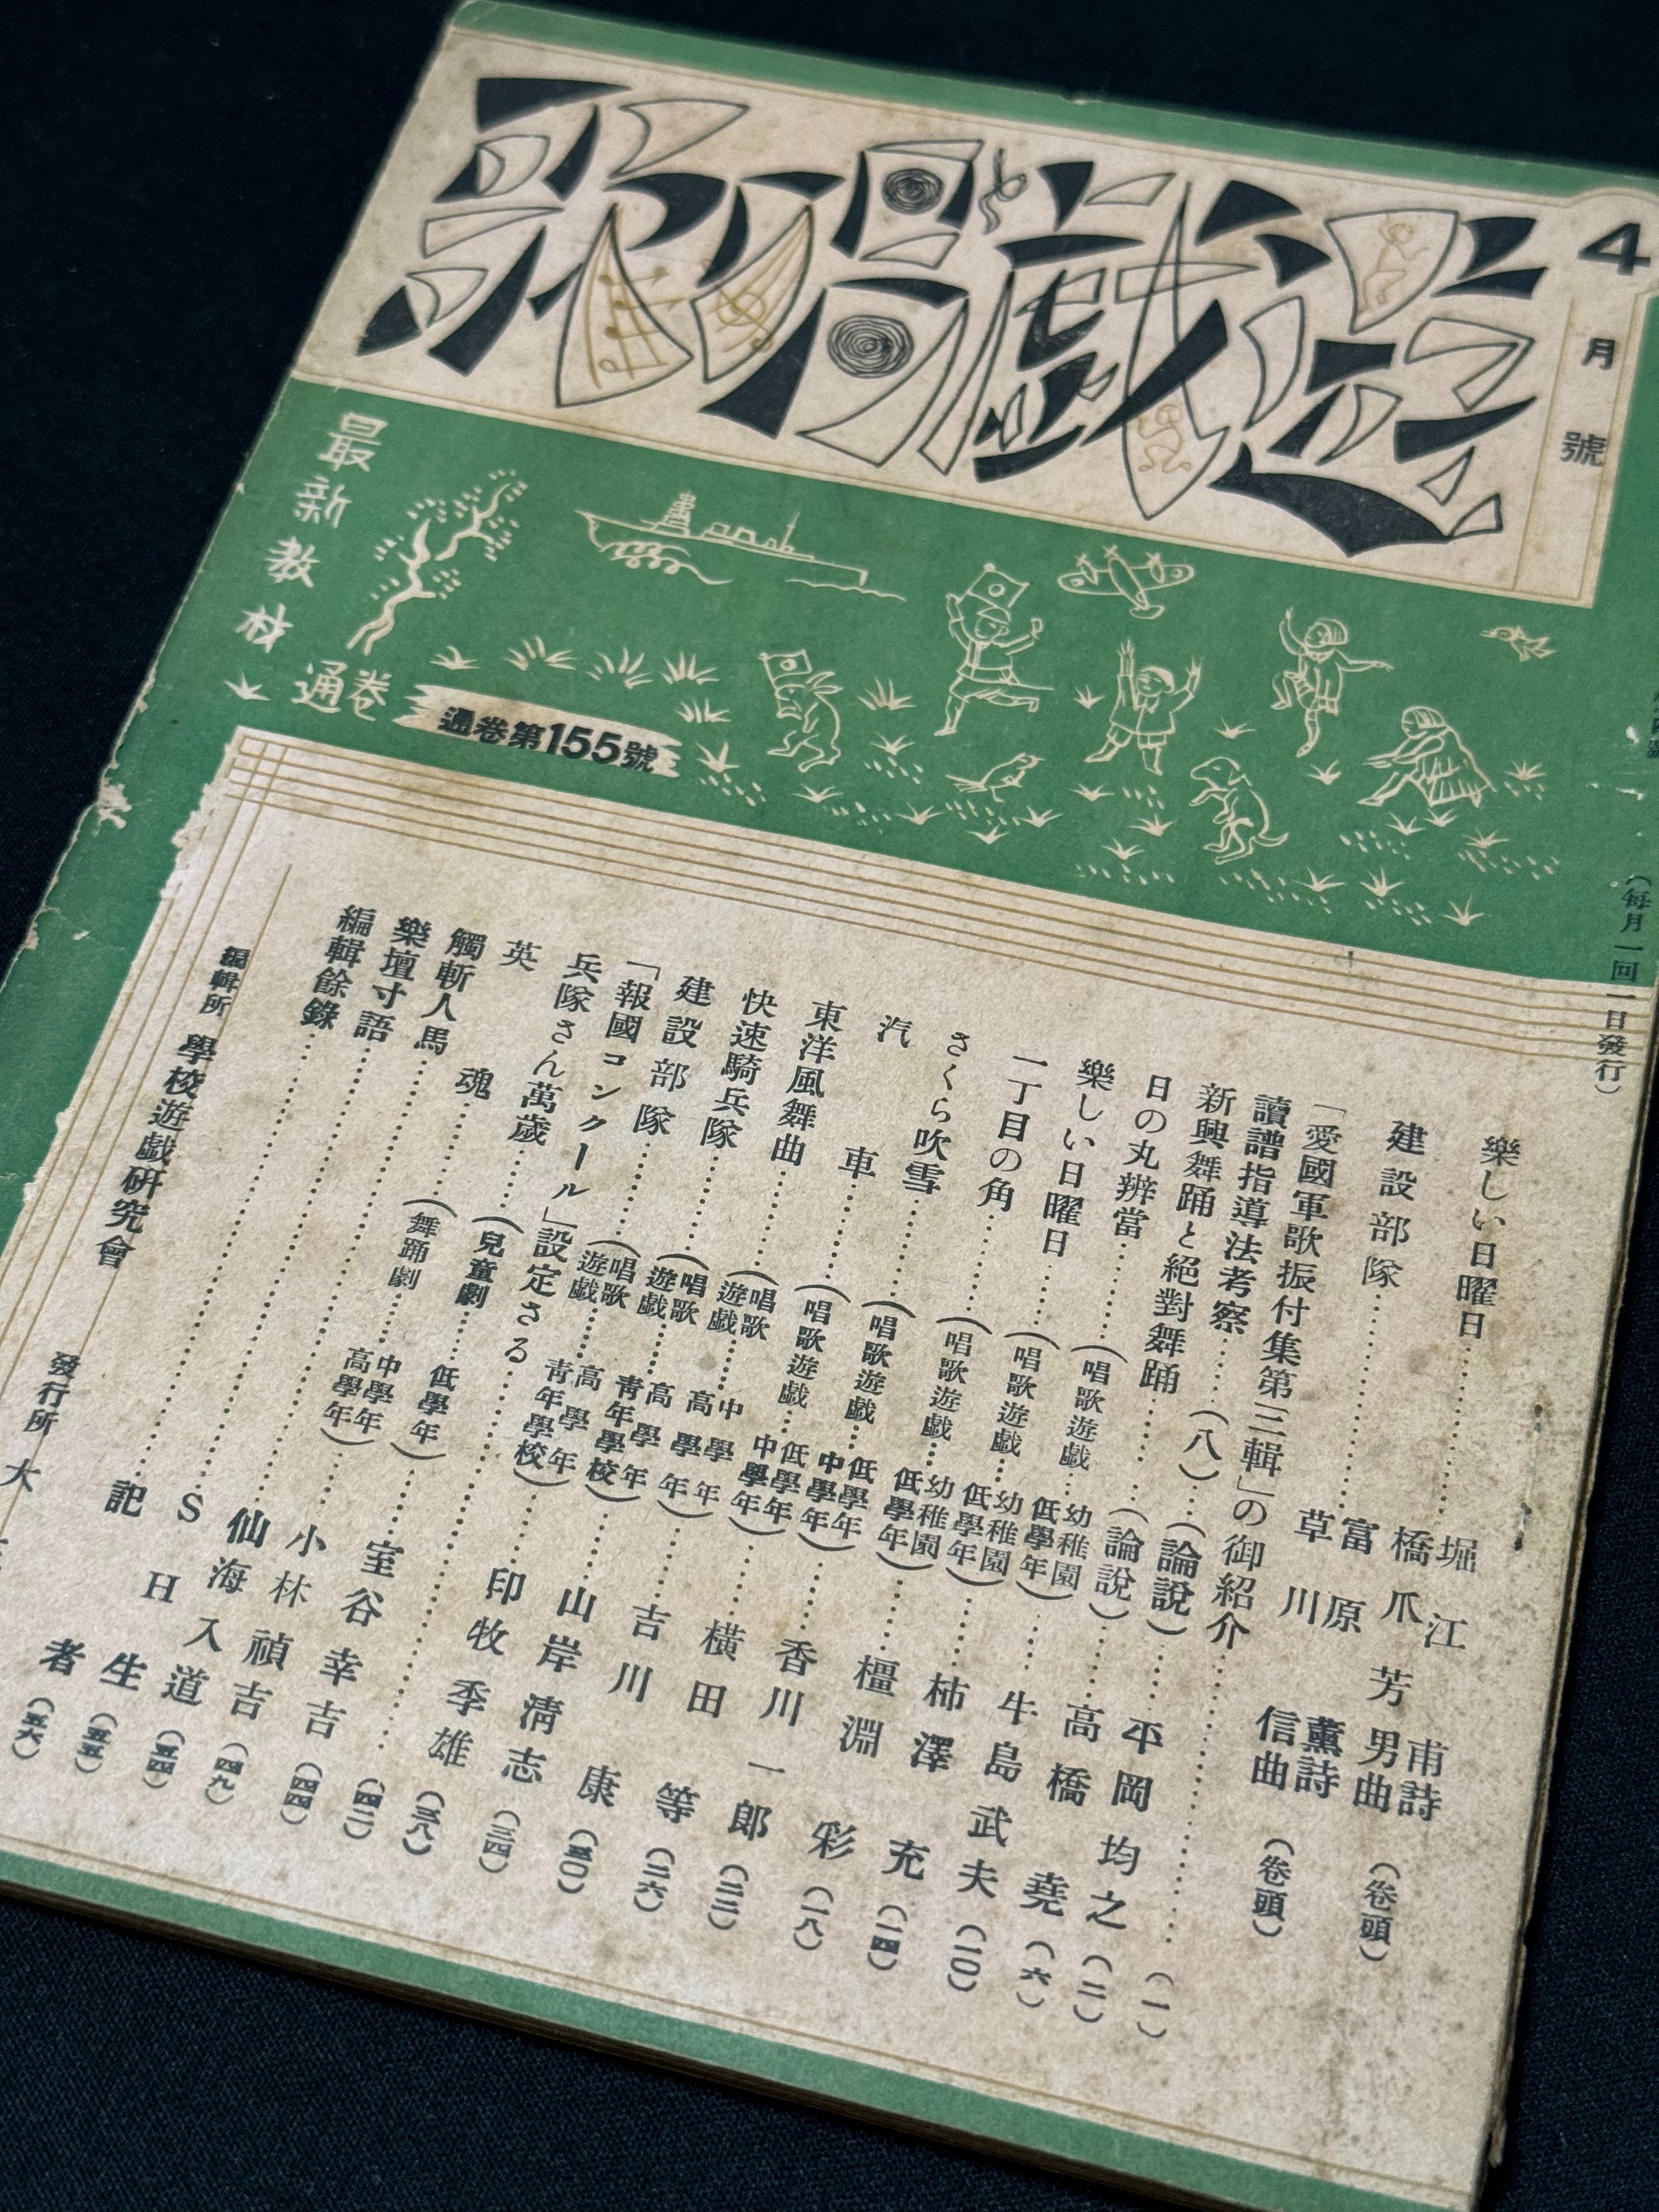 歌唱戯遊
4月號
最新教材
通巻
通巻第155號
(每月一回一日發行)
樂しい日曜日……堀江 甫詩 橋爪芳男曲(卷頭)
建設部隊……富原 薫詩 草川 信曲(卷頭)
「愛國軍歌振付集第三輯」の御紹介……(一)
讀譜指導法考察……(八)……(論說)……平岡均之(二)
新興舞踊と絕對舞踊……(論說)……高橋 堯(六)
日の丸辨當……(唱歌遊戯 幼稚園 低學年)……牛島武夫(一〇)
樂しい日曜日……(唱歌遊戯……幼稚園 低學年)……柿澤 充(一四)
一丁目の角……(唱歌遊戯……幼稚園 低學年)……橿淵 彩(一八)
さくら吹雪……(唱歌遊戯……低學年 中學年)……香川一郎(二二)
汽車……(唱歌遊戯……低學年 中學年)……橫田 等(二六)
東洋風舞曲……(唱歌遊戯……中學年 高學年)……吉川 康(三〇)
快速騎兵隊……(唱歌遊戯……高學年 青年學校)……山岸淸志(三四)
建設部隊……(唱歌遊戯……高學年 青年學校)……印牧季雄(三八)
「報國コンクール」設定さる……(四二)
兵隊さん萬歲……(兒童劇……低學年)……室谷幸吉(四四)
英魂……(舞踊劇……中學年 高學年)……小林禎吉(四九)
觸斬人馬……仙海入道(五四)
樂壇寸語……SH生(五五)
編輯餘錄……記者(五六)
編輯所 學校遊戯研究會
發行所 大